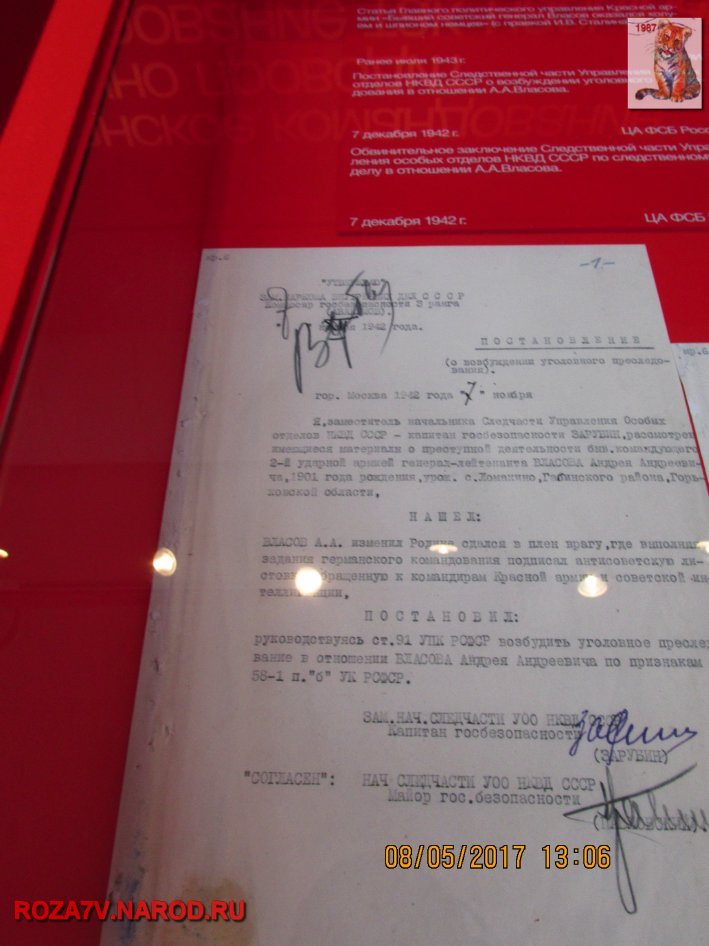 Статья Главного политического управления Красной ар-
мии «Бывший советский генерал Власов оказался
ем и шпионом немцев» (с правкой И.В. Сталина
1987
Ранее июля 1943 г.
Постановление Следственной части Управления
отделов НКВД СССР о возбуждении уголовного
дования в отношении А.А.Власова.
7 декабря 1942 г. ЦА ФСБ Росс
Обвинительное заключение Следственной части Упра
ления особых отделов НКВД СССР по следственному
делу в отношении А.А.Власова.
7 декабря 1942 г. ЦА ФСБ
-1-
Комиссар госбезопасности 3 ранга
1942 года.
ПОСТАНОВЛЕНИЕ
(о возбуждении уголовного преследо-
вания).
гор. Москва 1942 года "7" ноября
Я, заместитель начальника Следчасти Управления Особых
отделов НКВД СССР - капитан госбезопасности ЗАРУБИН, рассмотрев
имеющиеся материалы о преступной деятельности быв. командующего
2-й ударной армией генерал-лейтенанта ВЛАСОВА Андрея Андрееви-
ча, 1901 года рождения, урож. с.Ломакино, Гагинского района, Горь-
ковской области,
НАШЕЛ:
ВЛАСОВ А.А. изменил Родине сдался в плен врагу, где выполняя
задания германского командования подписал антисоветскую ли-
стовку обращенную к командирам Красной армии и советской ин-
теллигенции,
ПОСТАНОВИЛ:
руководствуясь ст.91 УПК РСФСР возбудить уголовное преслед
вание в отношении ВЛАСОВА Андрея Андреевича по признакам
58-1 п."б" УК РСФСР.
ЗАМ.НАЧ.СЛЕДЧАСТИ УОО НКВД СССР
Капитан госбезопасности
(ЗАРУБИН)
"СОГЛАСЕН": НАЧ СЛЕДЧАСТИ УОО НКВД СССР
Майор гос.безопасности
08/05/2017 13:06
ROZA7V.NAROD.RU